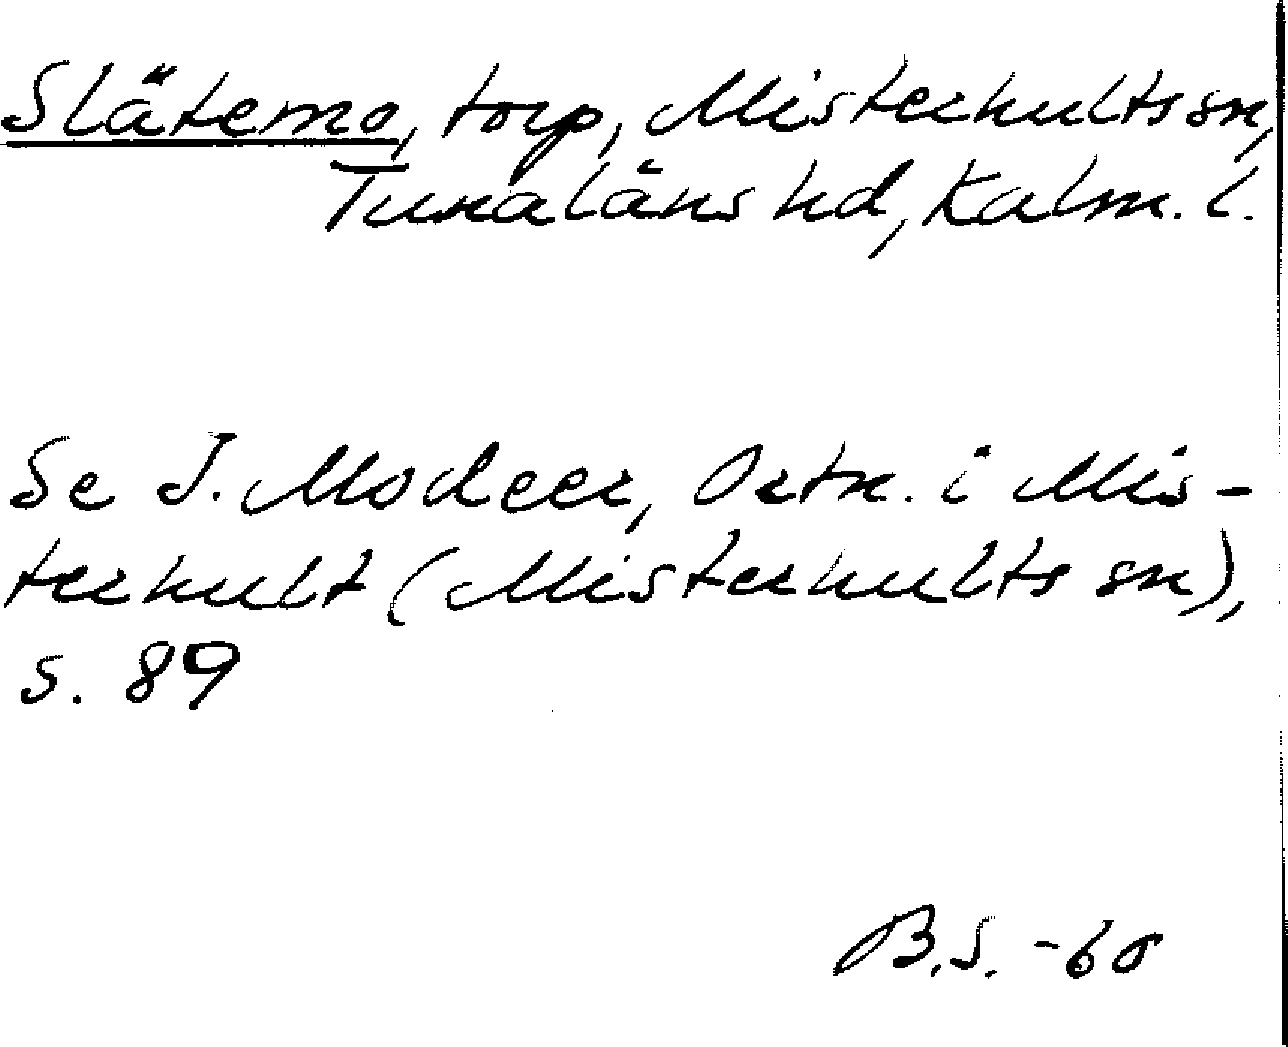 Slätemo, torp, Misterhults sn,
Tunaläns hd, Kalm. l.
Se I. Modeer, Ortn. i Mis-
terhult (Misterhults sn),
s. 89
B.S. -60